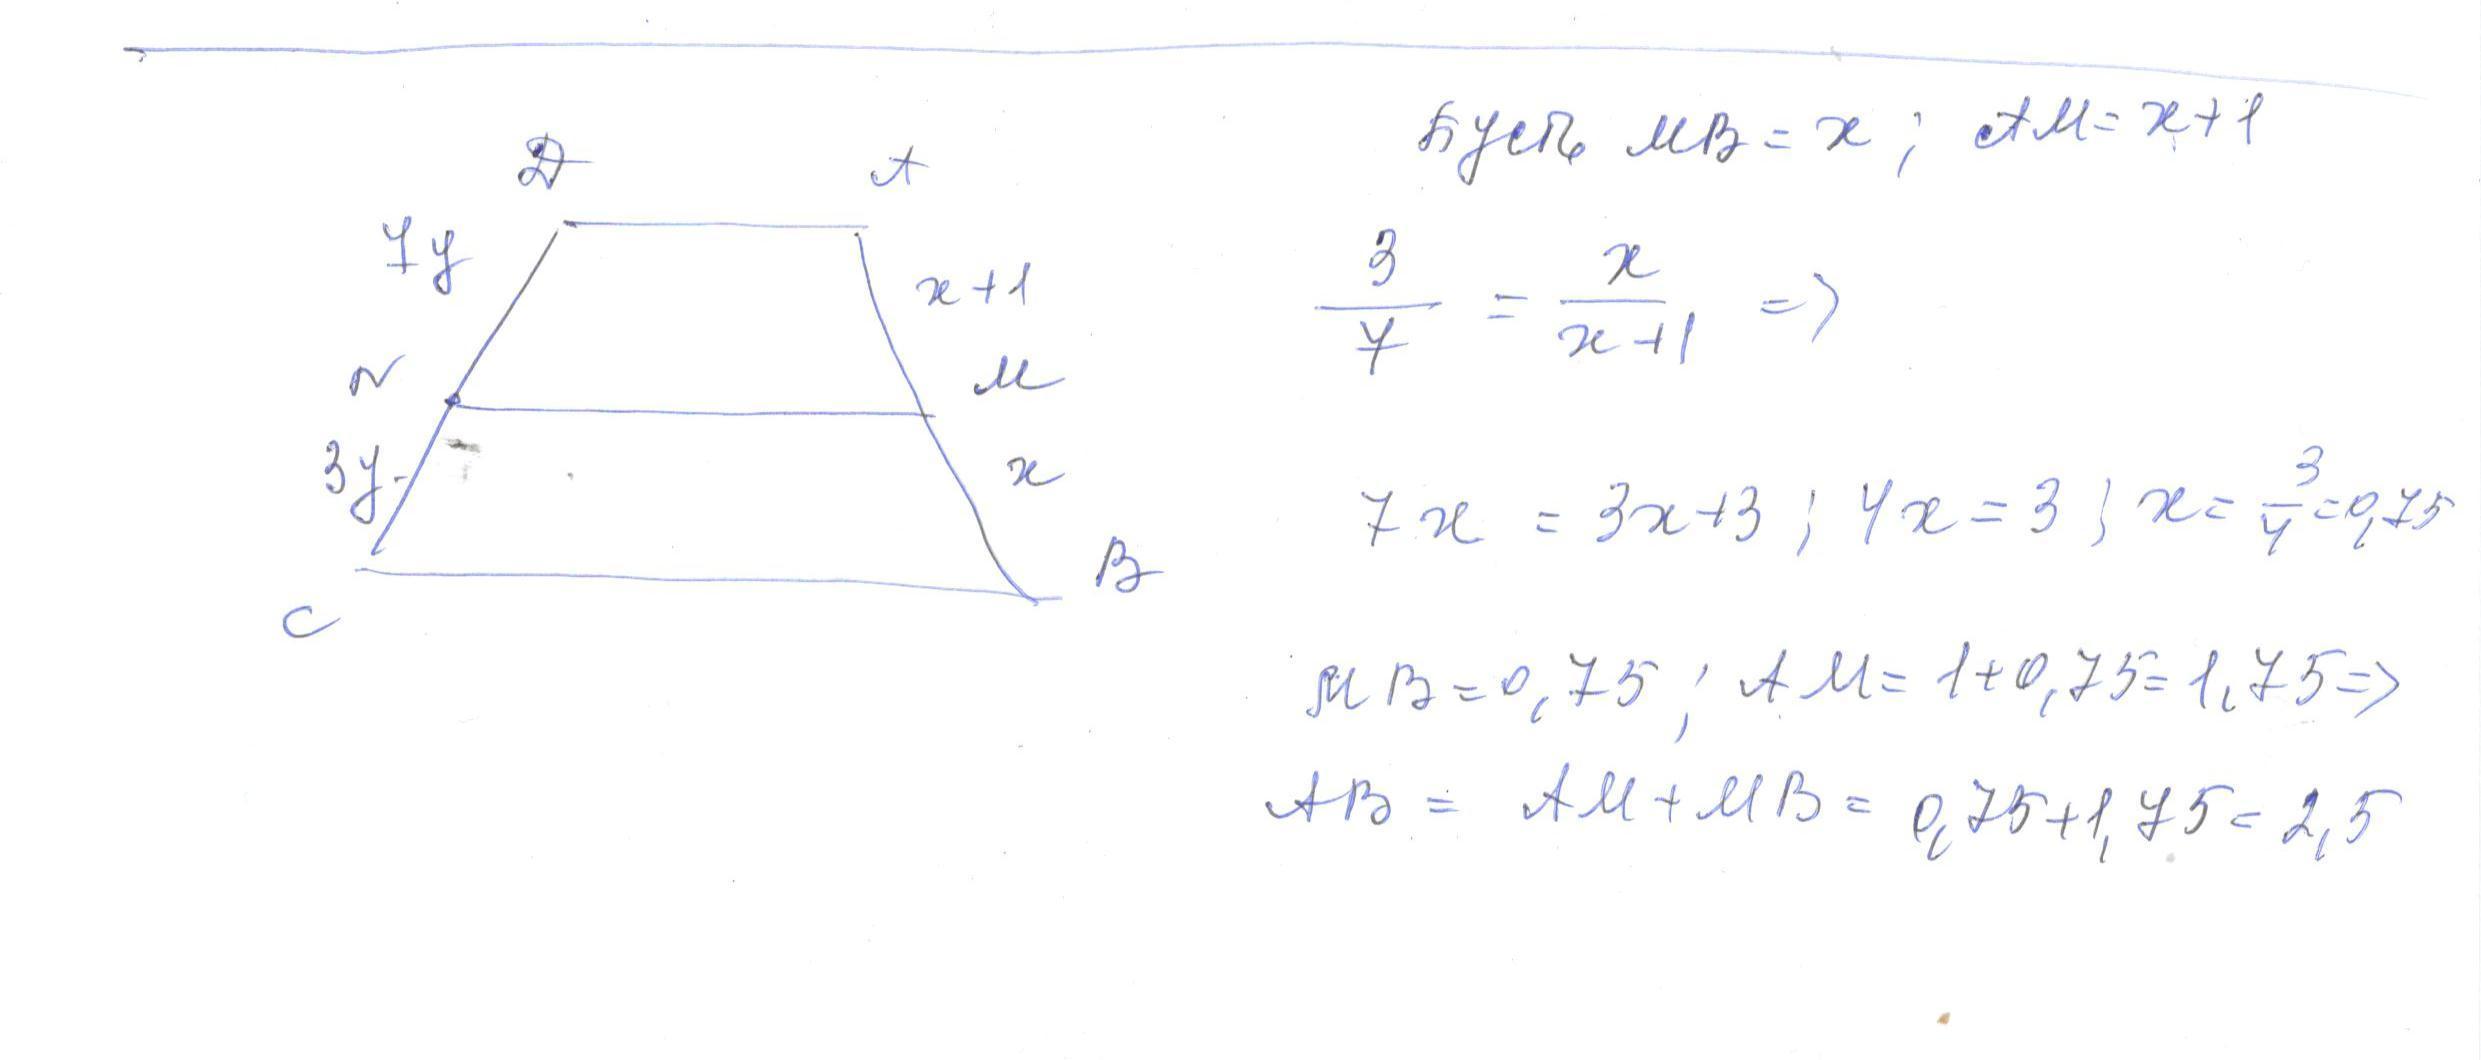 Пусть MB = x ; AM = x+1
D A
7y
x+1
3/7 = x/(x+1) =>
N
M
3y
x
7x = 3x+3 ; 4x = 3 ; x = 3/4 = 0,75
B
C
MB = 0,75 ; AM = 1+0,75 = 1,75 =>
AB = AM + MB = 0,75+1,75 = 2,5